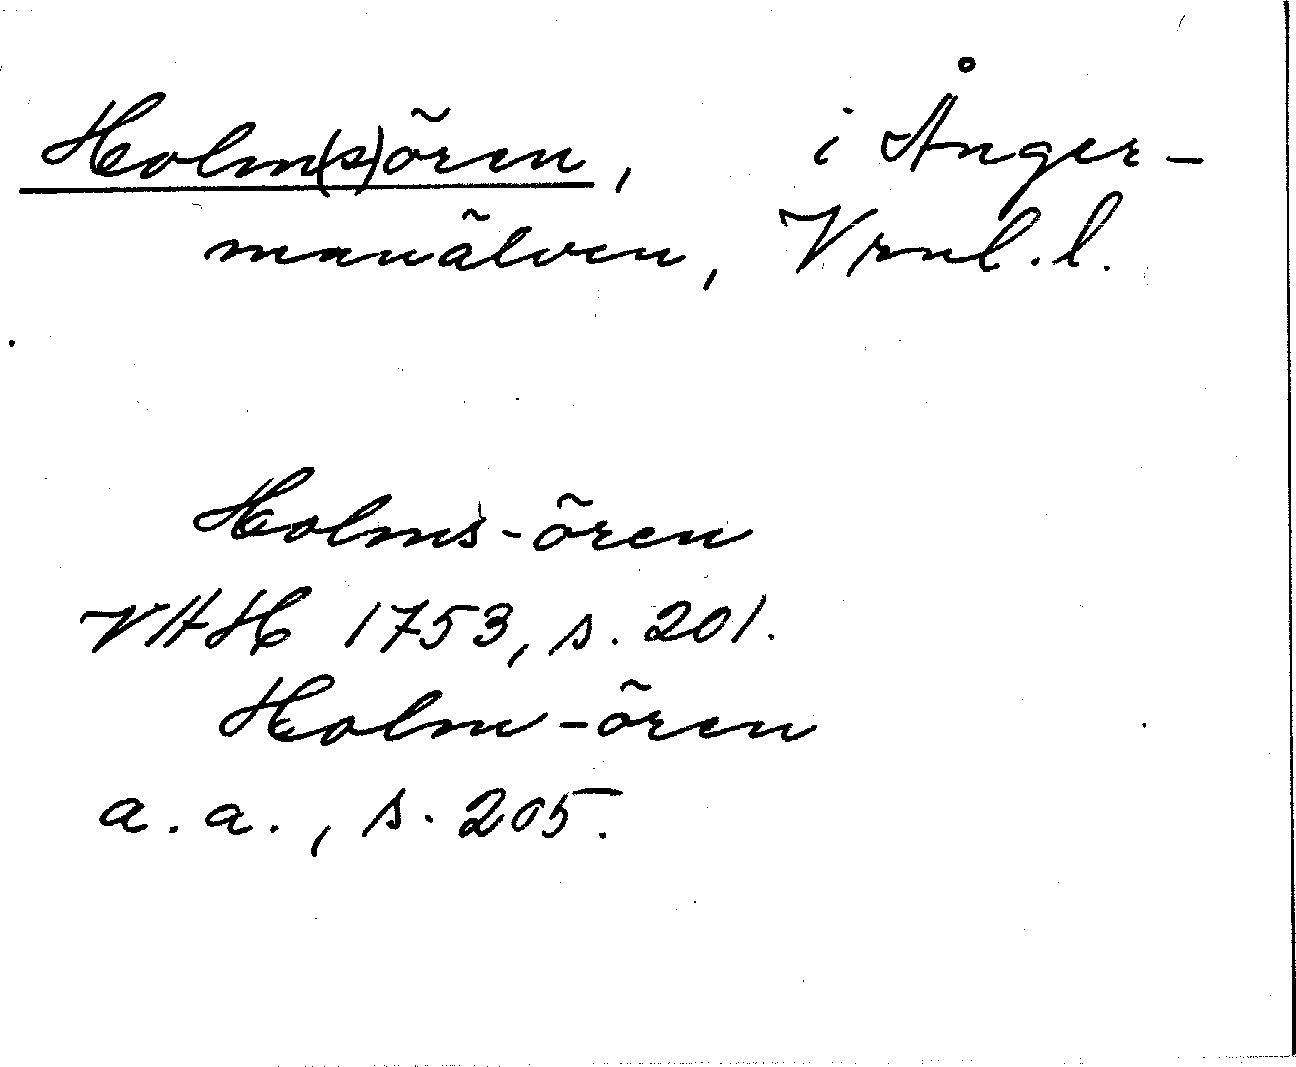 Holm(s)ören, i Ånger-
manälven, Vrnl. l.
Holms-ören
VHH 1753, s. 201.
Holm-ören
a. a., s. 205.